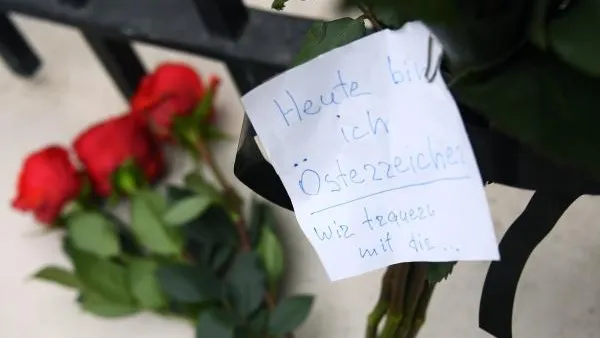 Heute bin
ich
Österreicher
wir trauern
mit dir...